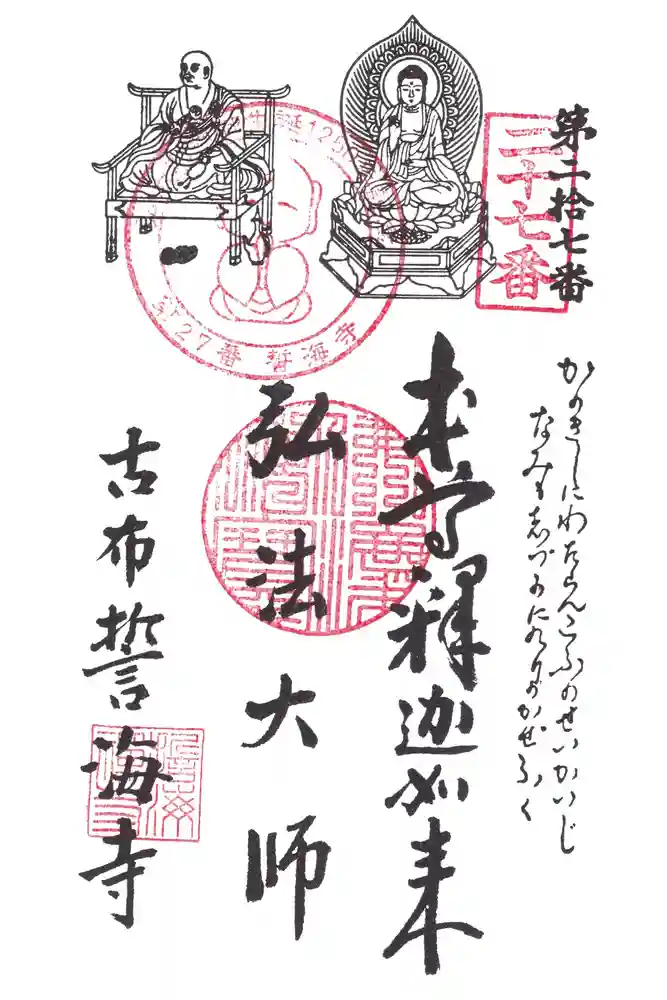 第二拾七番
二十七番
かのきしにわたらんこふのせいかいじ
なみもしづかにのりのかぜふく
本尊釋迦如来
弘法大師
古布誓海寺
誕125
第27番 誓海寺